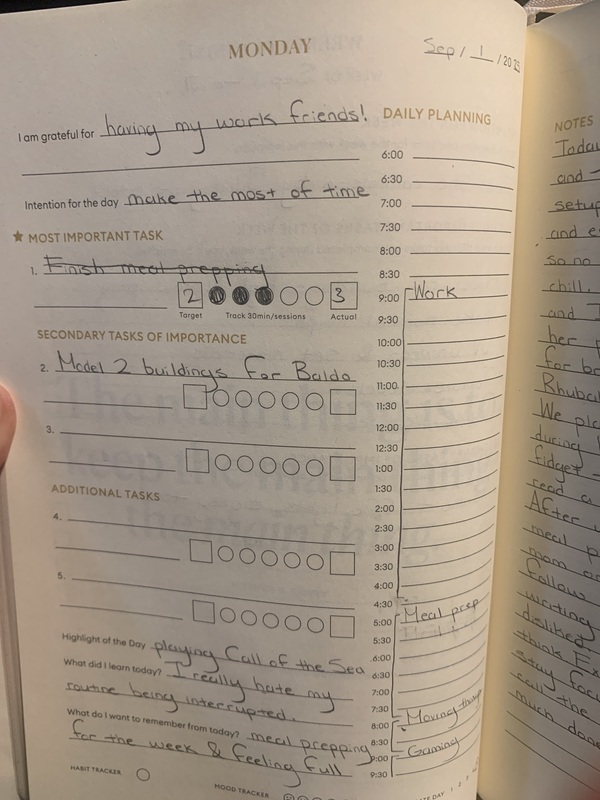 MONDAY
Sep / 1 / 2025
I am grateful for having my work friends!
Intention for the day make the most of time
★ MOST IMPORTANT TASK
1. Finish meal prepping
2 3
Target Track 30min/sessions Actual
SECONDARY TASKS OF IMPORTANCE
2. Model 2 buildings for Balda
3.
ADDITIONAL TASKS
4.
5.
Highlight of the Day playing Call of the Sea
What did I learn today? I really hate my
routine being interrupted.
What do I want to remember from today? meal prepping
for the week & feeling full
HABIT TRACKER
MOOD TRACKER
DAILY PLANNING
6:00
6:30
7:00
7:30
8:00
8:30
9:00 Work
9:30
10:00
10:30
11:00
11:30
12:00
12:30
1:00
1:30
2:00
2:30
3:00
3:30
4:00
4:30
5:00 Meal prep
5:30
6:00
6:30
7:00
7:30
8:00 Moving
8:30
9:00 Gaming
9:30
DAY 1 2 3
NOTES
Today
and
setup
and
so no
chill.
and
her
for
Rhubar
We pla
during
fidget
read a
After
meal p
mom
follow
writing
disliked
think
stay foc
call the
much done